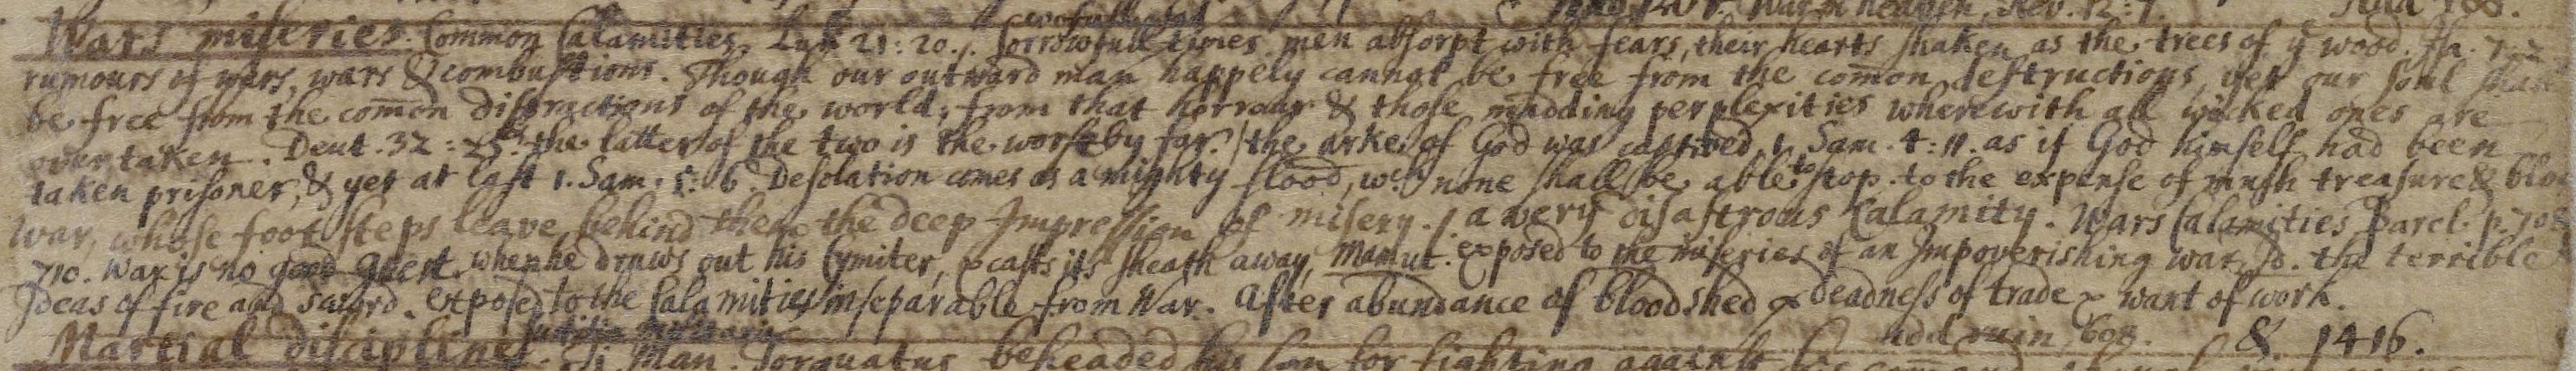 Wars miseries. Common Calamities. Luk 21:20. Sorrowfull times. men absorpt with fears, their hearts shaken as the trees of yͤ wood. Isa. 7.
rumours of wars, wars & combustions. Though our outward man happely cannot be free from the com̄on destructions, yet our soul shall
be free from the com̄on distractions of the world; from that horrour & those madding perplexities wherewith all wicked ones are
overtaken. Deut. 32:25. the latter of the two is the worst by far. / the arke of God was captived, 1. Sam. 4:11. as if God himself had been
taken prisoner, & yet at last 1. Sam. 5:6. Desolation comes as a mighty flood, wᶜʰ none shall be able to stop. to the expense of much treasure &
War, whose foot steps leave behind them the deep Impression of misery. /. a very disastrous Calamity. Wars Calamities Parcl. p. 70
710. War is no good Guest. when he draws out his Cymiter, & casts its sheath away, Mamut. exposed to the miseries of an Impoverishing War, Id. the terrible
Ideas of fire and sword. exposed to the Calamities inseparable from War. After abundance of bloodshed & deadness of trade & want of work.
add ruin 608. & 1416.
Martial discipline. Man. Torquatus beheaded his son for fighting against his